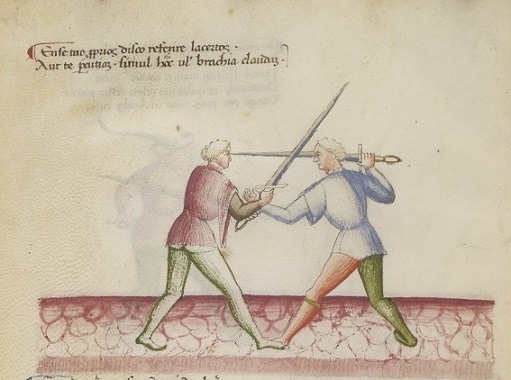 Ense tuo ꝓprios disco referire lacertos ·
Aut te ꝑcutiaꝫ · simul hoc ul' brachia claudaꝫ ·